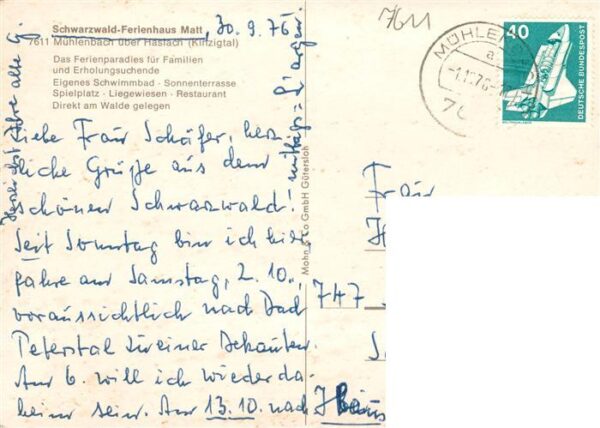 Schwarzwald-Ferienhaus Matt, 30.9.76
7611 Mühlenbach über Haslach (Kinzigtal)
Das Ferienparadies für Familien
und Erholungsuchende
Eigenes Schwimmbad · Sonnenterrasse
Spielplatz · Liegewiesen · Restaurant
Direkt am Walde gelegen
Liebe Frau Schäfer, herz-
liche Grüße aus dem
schönen Schwarzwald!
Seit Sonntag bin ich hier,
fahre am Samstag, 2.10.,
voraussichtlich nach Bad
Peterstal zu einer Bekannten.
Am 6. will ich wieder da-
heim sein. Am 13.10. nach
Herzlichst Ihre alte
Mohn & Co GmbH Gütersloh
7611
MÜHLENB
a
76
40
DEUTSCHE BUNDESPOST
Frau
H
747